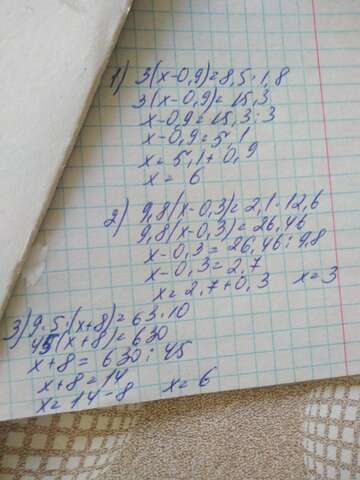 1) 3(x-0,9)=8,5·1,8
3(x-0,9)=15,3
x-0,9=15,3:3
x-0,9=5,1
x=5,1+0,9
x= 6
2) 9,8(x-0,3)=2,1·12,6
9,8(x-0,3)=26,46
x-0,3=26,46:9,8
x-0,3=2,7
x=2,7+0,3 x=3
3) 9·5:(x+8)=63·10
45(x+8)=630
x+8=630:45
x+8=14
x=14-8 x=6